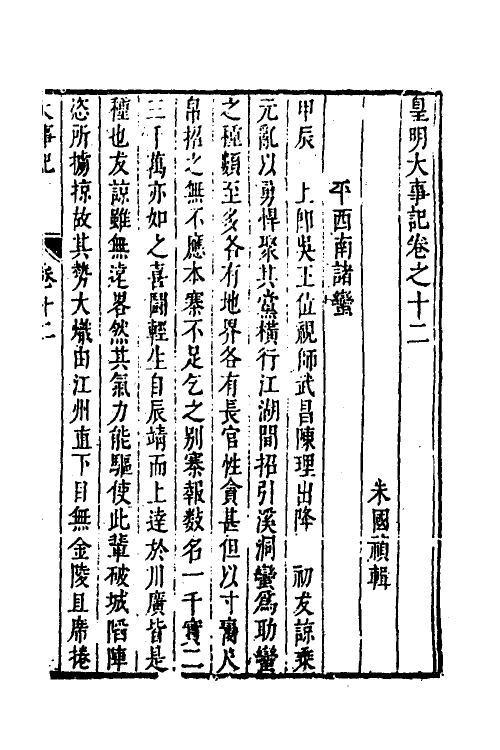 皇明大事記卷之十二
朱國禎輯
平西南諸蠻
甲辰　上卽吳王位視師武昌陳理出降　初友諒乘
元亂以勇悍聚其黨橫行江湖間招引溪洞蠻爲助蠻
之種類至多各有地界各有長官性貪甚但以寸帛尺
帛招之無不應本寨不足乞之別寨報數名一千實二
三千萬亦如之喜鬭輕生自辰靖而上達於川廣皆是
種也友諒雖無遠畧然其氣力能驅使此輩破城陷陣
恣所擄掠故其勢大熾由江州直下目無金陵且席捲
大事記　卷十二